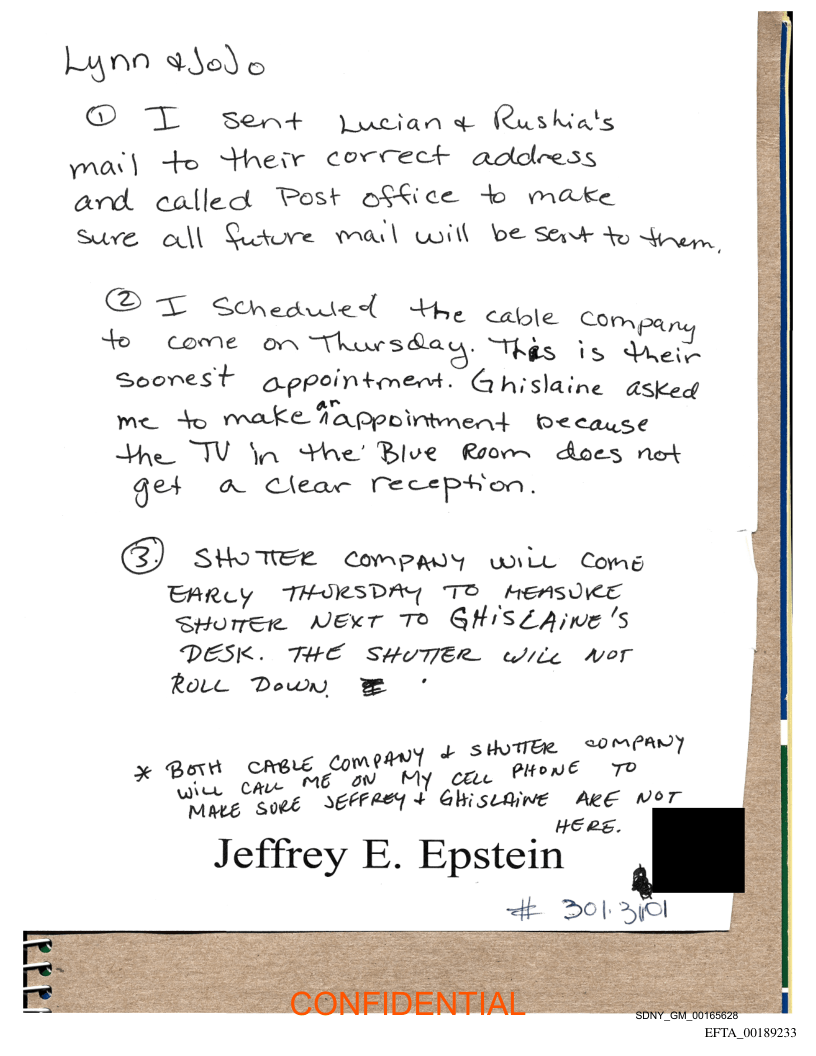 Lynn & JoJo
① I sent Lucian & Rushia's
mail to their correct address
and called Post office to make
sure all future mail will be sent to them.
② I scheduled the cable company
to come on Thursday. This is their
soonest appointment. Ghislaine asked
me to make an appointment because
the TV in the Blue Room does not
get a clear reception.
③. SHUTTER COMPANY WILL COME
EARLY THURSDAY TO MEASURE
SHUTTER NEXT TO GHISLAINE'S
DESK. THE SHUTTER WILL NOT
ROLL DOWN.
* BOTH CABLE COMPANY & SHUTTER COMPANY
WILL CALL ME ON MY CELL PHONE TO
MAKE SURE JEFFREY & GHISLAINE ARE NOT
HERE.
Jeffrey E. Epstein
# 301.3101
CONFIDENTIAL
SDNY_GM_00165628
EFTA_00189233